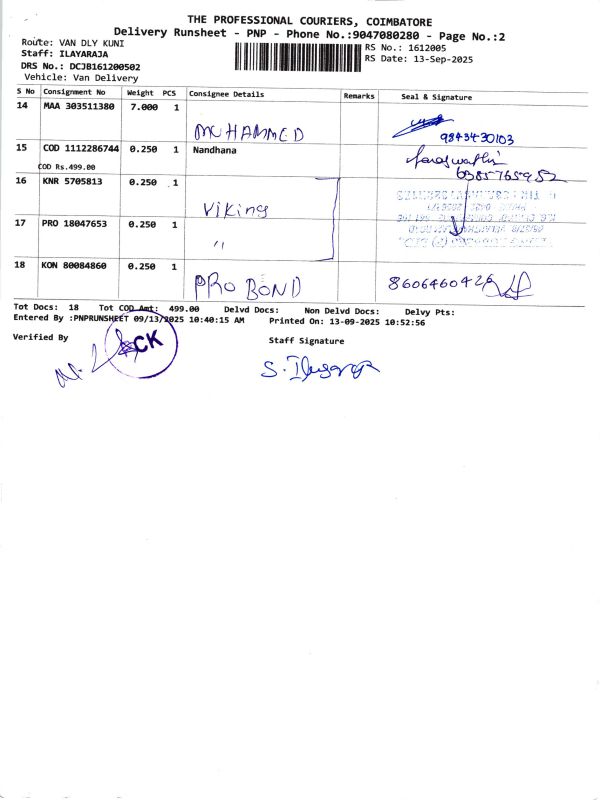 THE PROFESSIONAL COURIERS, COIMBATORE
Delivery Runsheet - PNP - Phone No.:9047080280 - Page No.:2
Route: VAN DLY KUNI
RS No.: 1612005
Staff: ILAYARAJA
RS Date: 13-Sep-2025
DRS No.: DCJB161200502
Vehicle: Van Delivery
S No Consignment No Weight PCS Consignee Details Remarks Seal & Signature
14 MAA 303511380 7.000 1 MUHAMMED 9843430103
15 COD 1112286744 0.250 1 Nandhana
COD Rs.499.00
16 KNR 5705813 0.250 1 Viking
17 PRO 18047653 0.250 1 "
18 KON 80084860 0.250 1 PRO BOND 8606460426
Tot Docs: 18 Tot COD Amt: 499.00 Delvd Docs: Non Delvd Docs: Delvy Pts:
Entered By :PNPRUNSHEET 09/13/2025 10:40:15 AM Printed On: 13-09-2025 10:52:56
Verified By
Staff Signature
CK
S. Ilayaraja